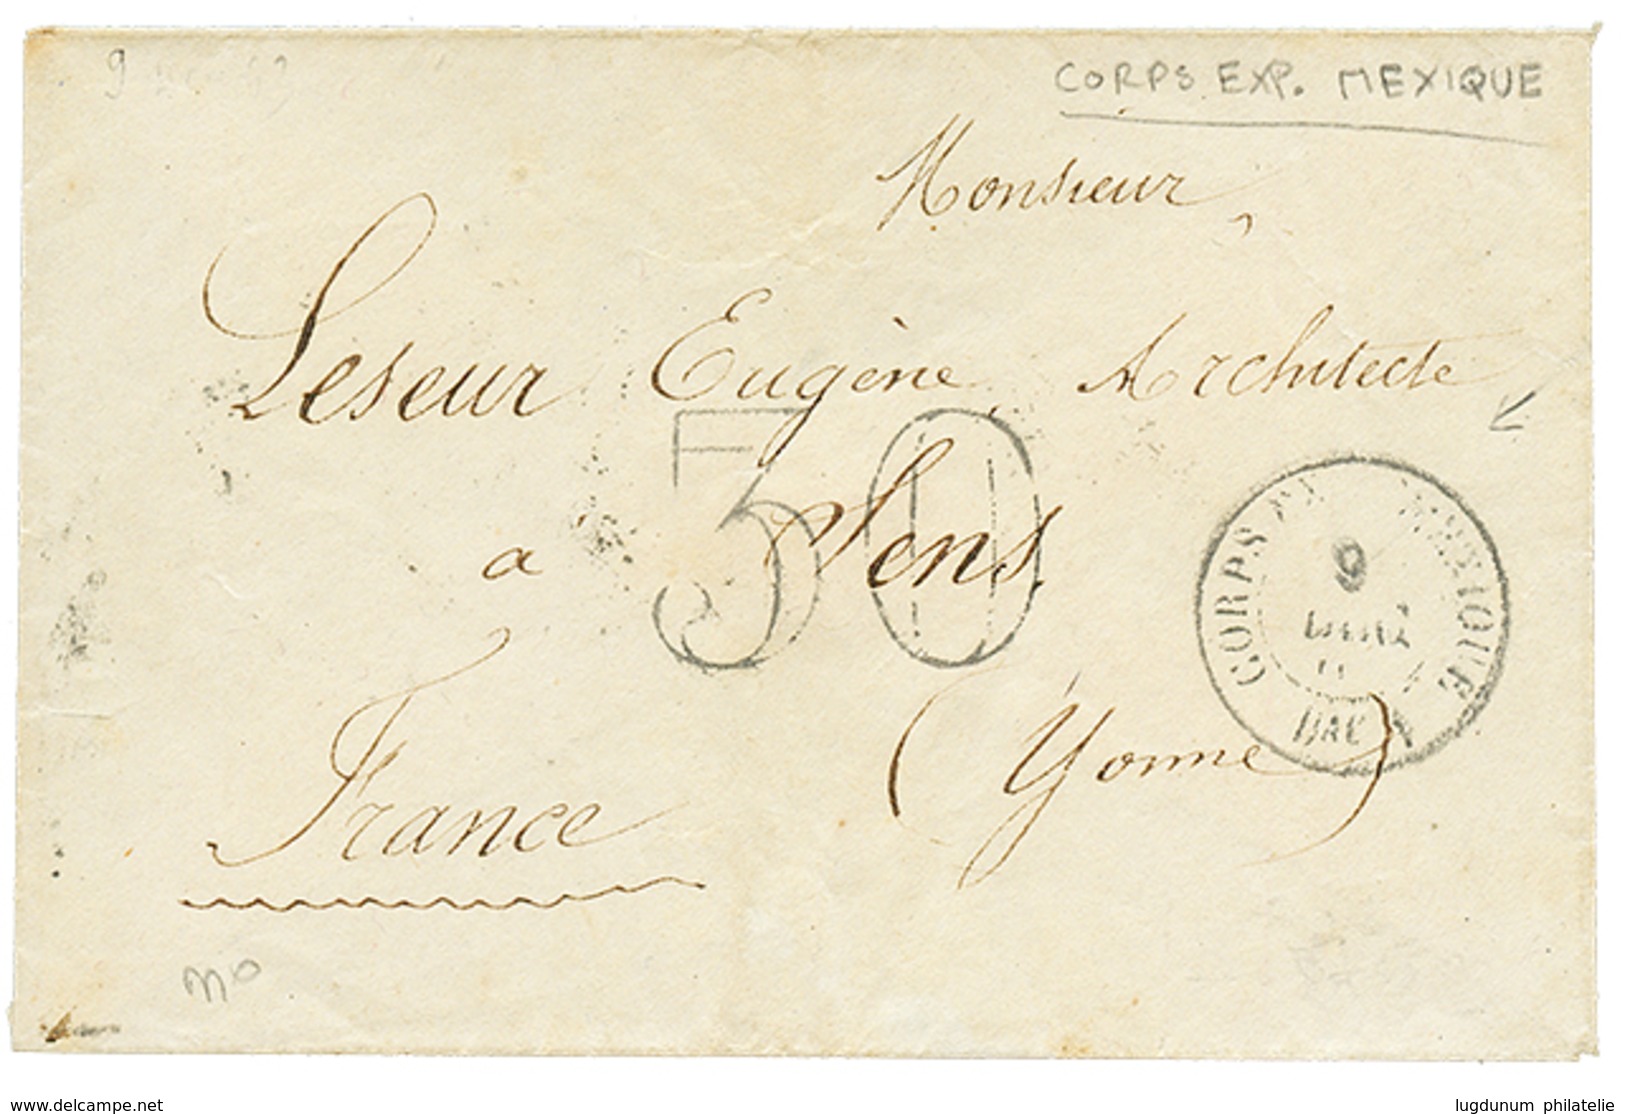 9
CORPS EXP. MEXIQUE
Monsieur
Leseur Eugène Architecte
30
à Sens
CORPS EX MEXIQUE
9
France
(Yonne)
no
www.delcampe.net
lugdunum philatelie